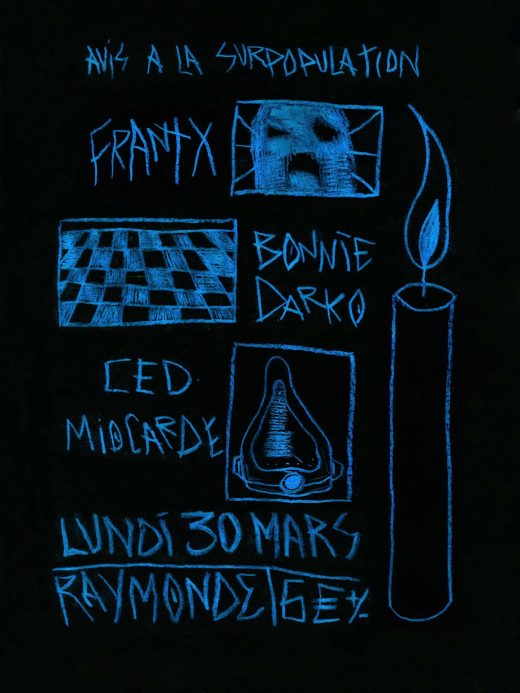 AVIS A LA SURPOPULATION
FRANTX
BONNIE
DARKO
CED
MIOCARDE
LUNDI 30 MARS
RAYMONDE 6E+/-